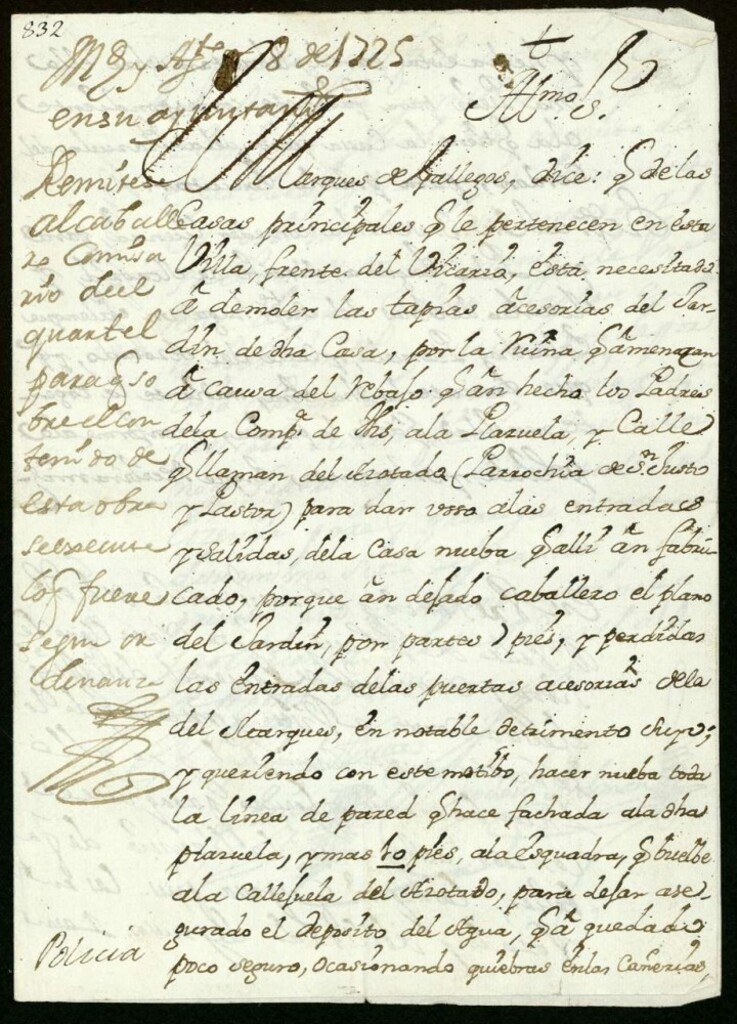 832
Md y Agto 8 de 1725
en su ayuntamto
Remitese
al caballe
ro Comisa
rio del
quartel
para q so
bre el con
tenido de
esta obra
se execute
lo q fuere
segun or
denanza
Policia
Illmo S.r
Marques de Gallegos, dice: q de las
Casas principales q le pertenecen en esta
Villa, frente del Vicario, está necesitado
â demoler las tapias âcesorias del Jar-
din de dha Casa, por la ruina q âmenazan
â causa del rebaso q ân hecho los Padres
dela Comp.a de Jhs, ala Plazuela, y Calle
q llaman del Azotado (Parrochia de Sn Justo
y Pastor) para dar uso alas entradas
y salidas, dela Casa nueba q alli ân fabri
cado, porque ân dejado caballero el plano
del Jardin, por partes 7 pies, y perdidas
las entradas delas puertas acesorias dela
del Marques, en notable detrimento suyo;
y queriendo con este motibo, hacer nueba toda
la linea de pared q hace fachada ala dha
plazuela, y mas 10 pies, ala esquadra, q buelbe
ala Callejuela del Azotado, para dejar ase-
gurado el deposito del Agua, q â quedado
poco seguro, ocasionando quiebras enlas Cañerias,